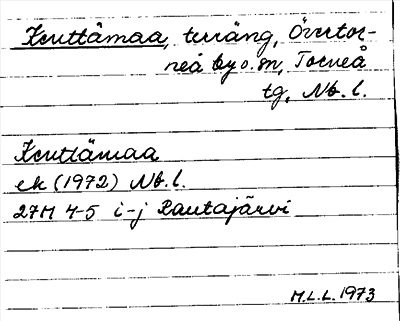 Knuttämaa, teräng, Övertor-
neå by o. sn, Torneå
tg, Nb. l.
Knuttämaa
ek (1972) Nb. l.
27M 4-5 i-j Rautajärvi
M.L.L. 1973